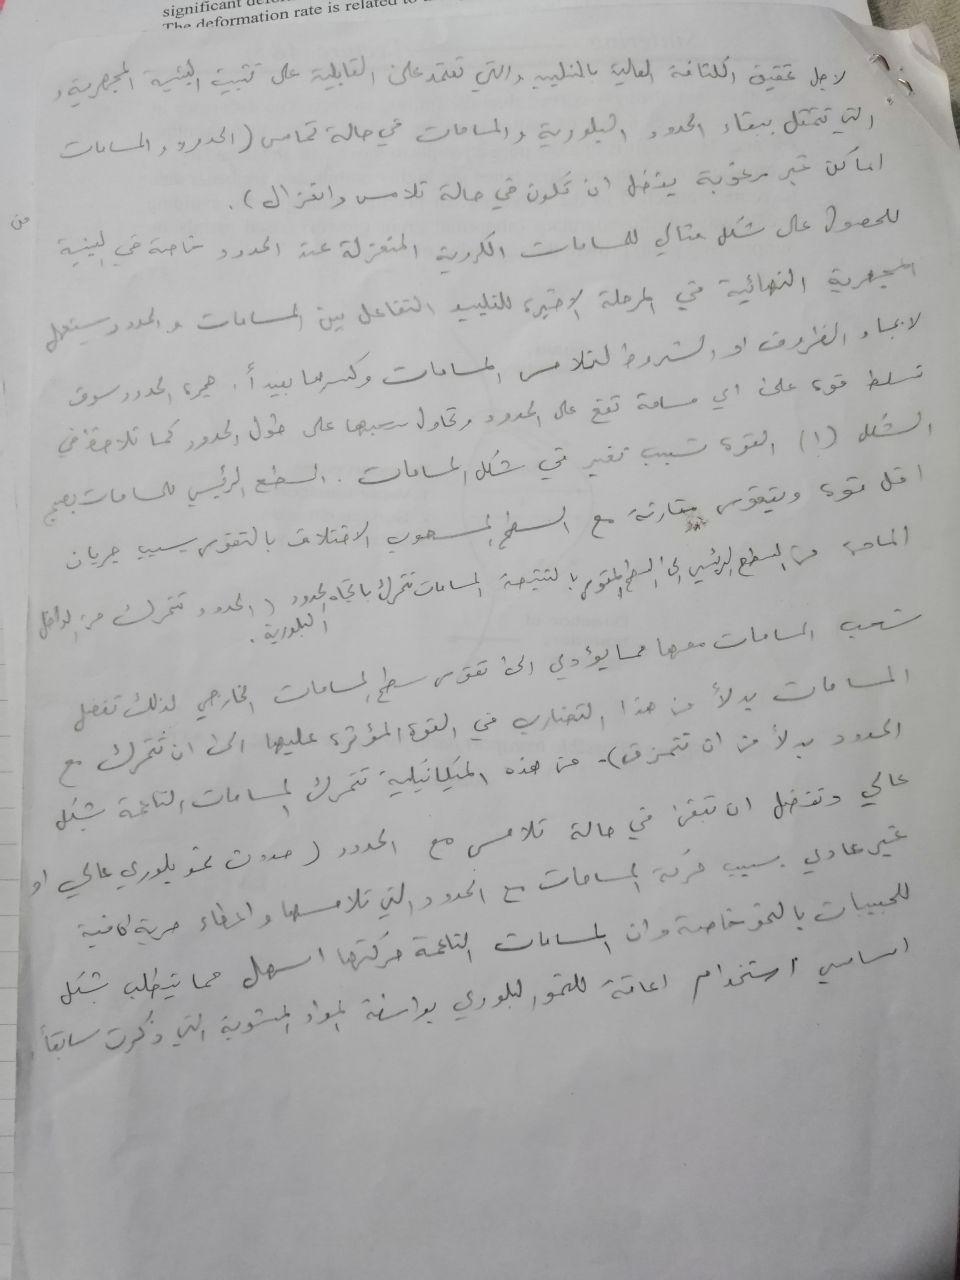 significant
The deformation rate is related to
لاجل تحقيق الكثافة العالية بالتلبيد والتي تعتمد على القابلية على تثبيت البنية المجهرية و
التي تتمثل ببقاء الحدود البلورية والمسامات في حالة تماس (الحدود والمسامات
اماكن غير مرغوبة يفضل ان تكون في حالة تلامس وانعزال).
من
للحصول على شكل مثالي للمسامات الكروية المنعزلة عند الحدود خاصة في البنية
المجهرية النهائية في المرحلة الاخيرة للتلبيد التفاعل بين المسامات والحدود سيتعمل
لايجاد الظروف او الشروط لتلامس المسامات وكسرها بعيداً. هجرة الحدود سوف
تسلط قوة على اي مسامة تقع على الحدود وتحاول سحبها على طول الحدود كما نلاحظ في
الشكل (١) القوة تسبب تغير في شكل المسامات. السطح الرئيسي للمسامات يصبح
اقل قوة ويتقوس مقارنة مع السطح المسحوب الاختلاف بالتقوس يسبب جريان
المادة من السطح الرئيسي الى السطح المتقوس بالنتيجة المسامات تتحرك باتجاه الحدود (الحدود تتحرك من الداخل
البلورية.
تسحب المسامات معها مما يؤدي الى تقوس سطح المسامات الخارجي لذلك تفضل
المسامات بدلاً من هذا التضارب في القوة المؤثرة عليها الى ان تتحرك مع
الحدود بدلاً من ان تتمزق). من هذه الميكانيكية تتحرك المسامات الناعمة بشكل
عالي وتفضل ان تبقى في حالة تلامس مع الحدود (حدوث نمو بلوري عالي او
غير عادي بسبب حركة المسامات مع الحدود التي تلامسها واعطاء حرية كافية
للحبيبات بالنمو خاصة وان المسامات الناعمة حركتها اسهل مما يتطلب بشكل
اساسي استخدام اعاقة للنمو البلوري بواسطة المواد المشوبة التي ذكرت سابقاً.